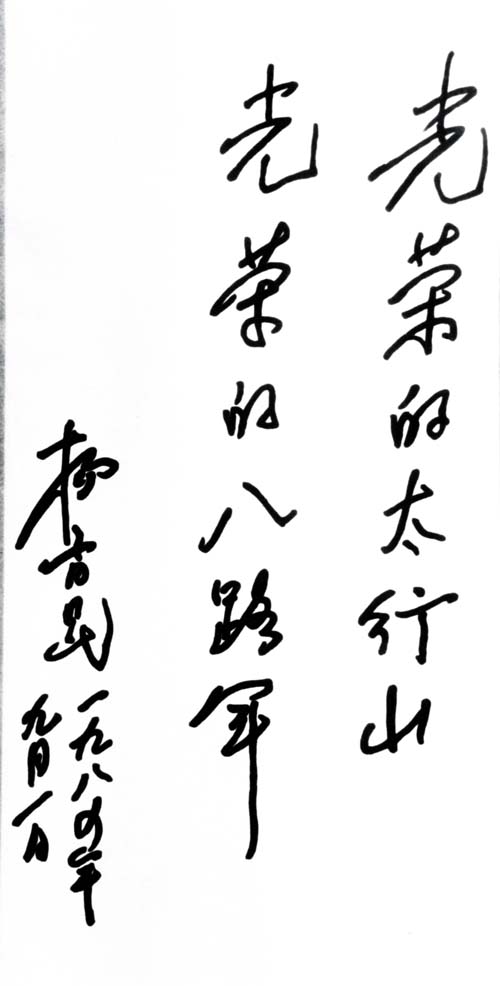 光荣的太行山
光荣的八路军
杨尚昆
一九八四年
九月一日